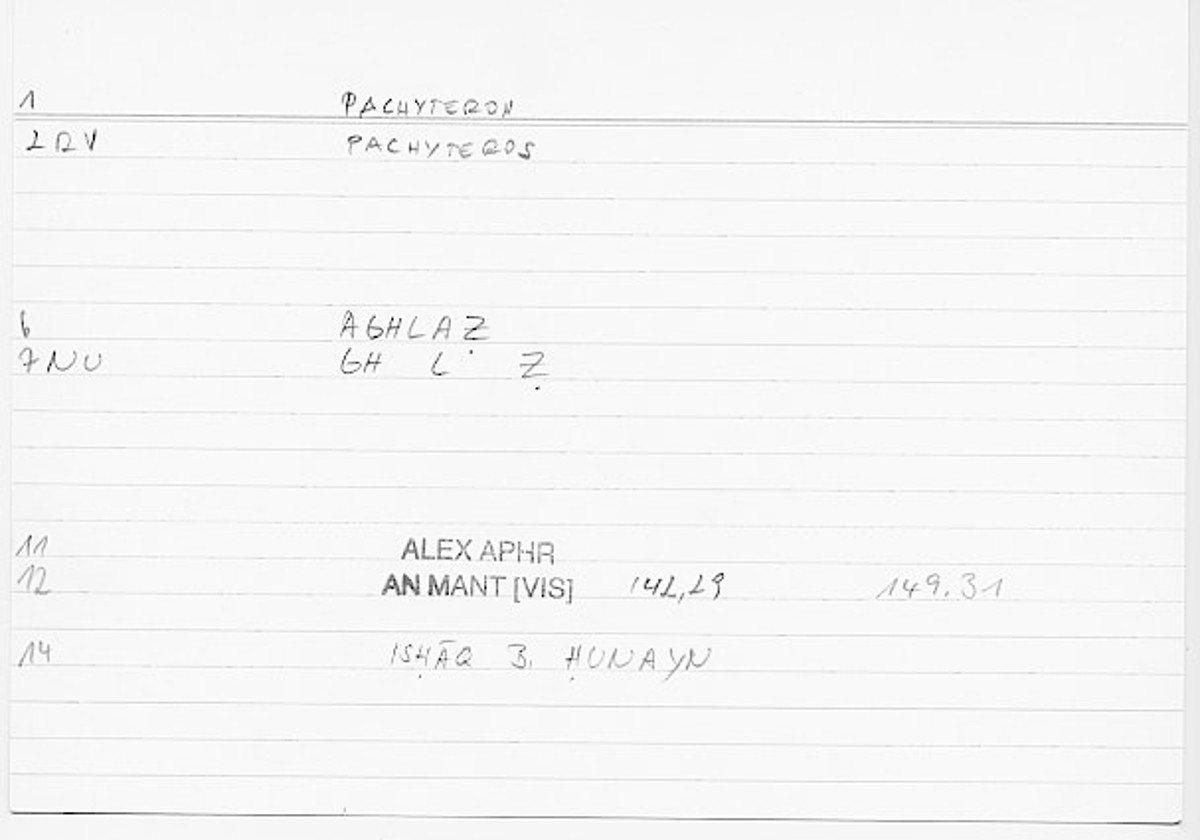 1 PACHYTERON
2 D V PACHYTEROS
6 AGHLAẒ
7 N U GH L Ẓ
11 ALEX APHR
12 AN MANT [VIS] 142,29 149.31
14 ISḤĀQ B. ḤUNAYN